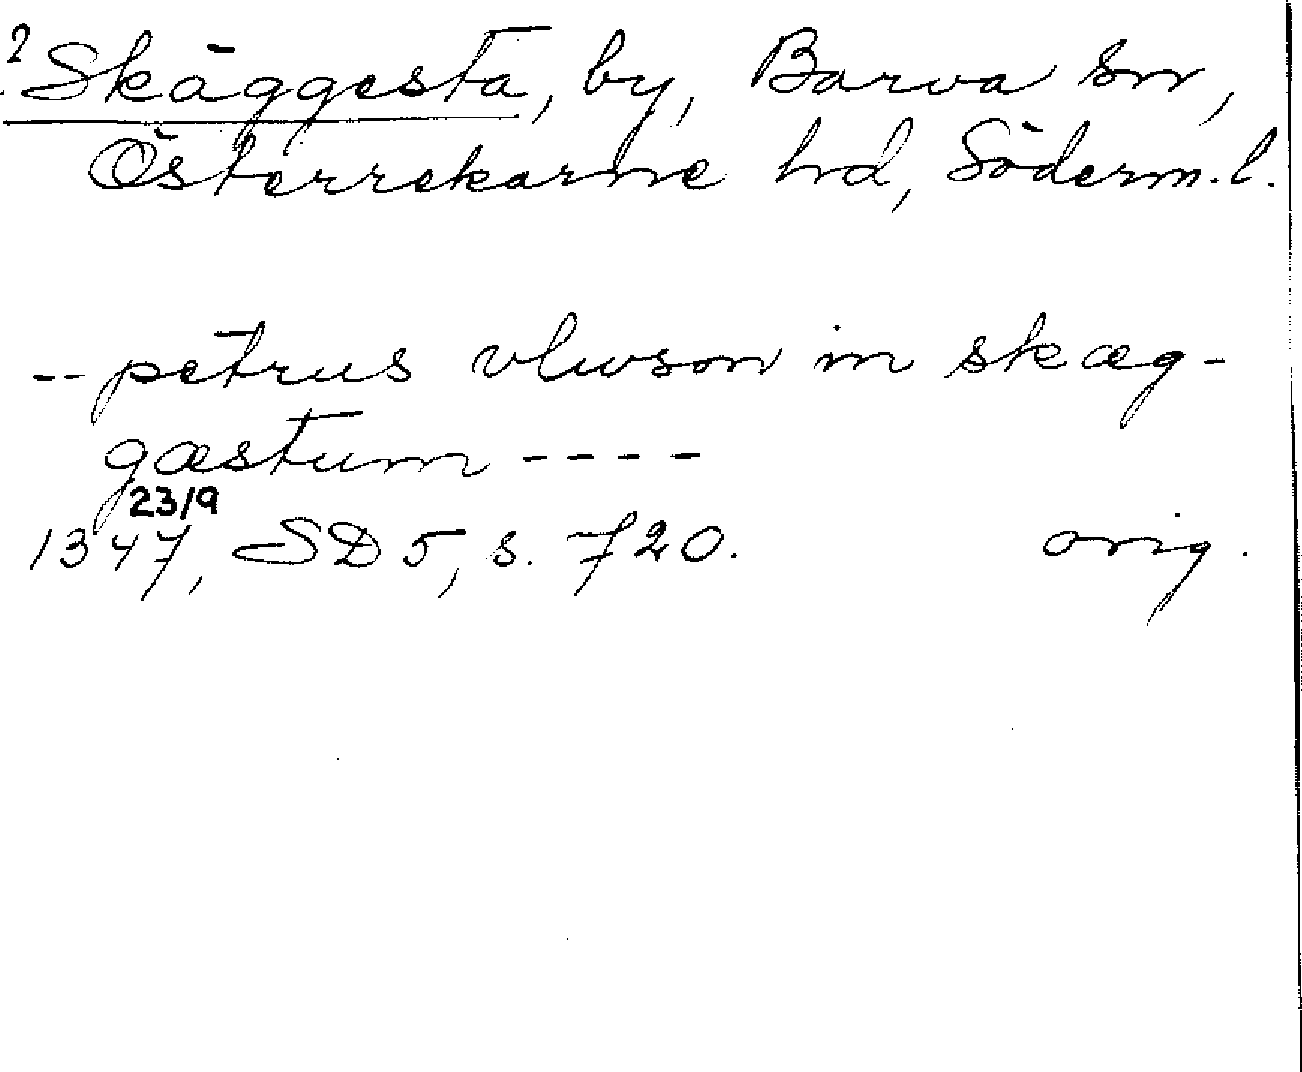 ? Skäggesta, by, Barva sn,
Österrekarne hd, Söderm.l.
-- petrus vlwson in skæg-
gæstum ----
23/9
1347, SD 5, s. 720. orig.